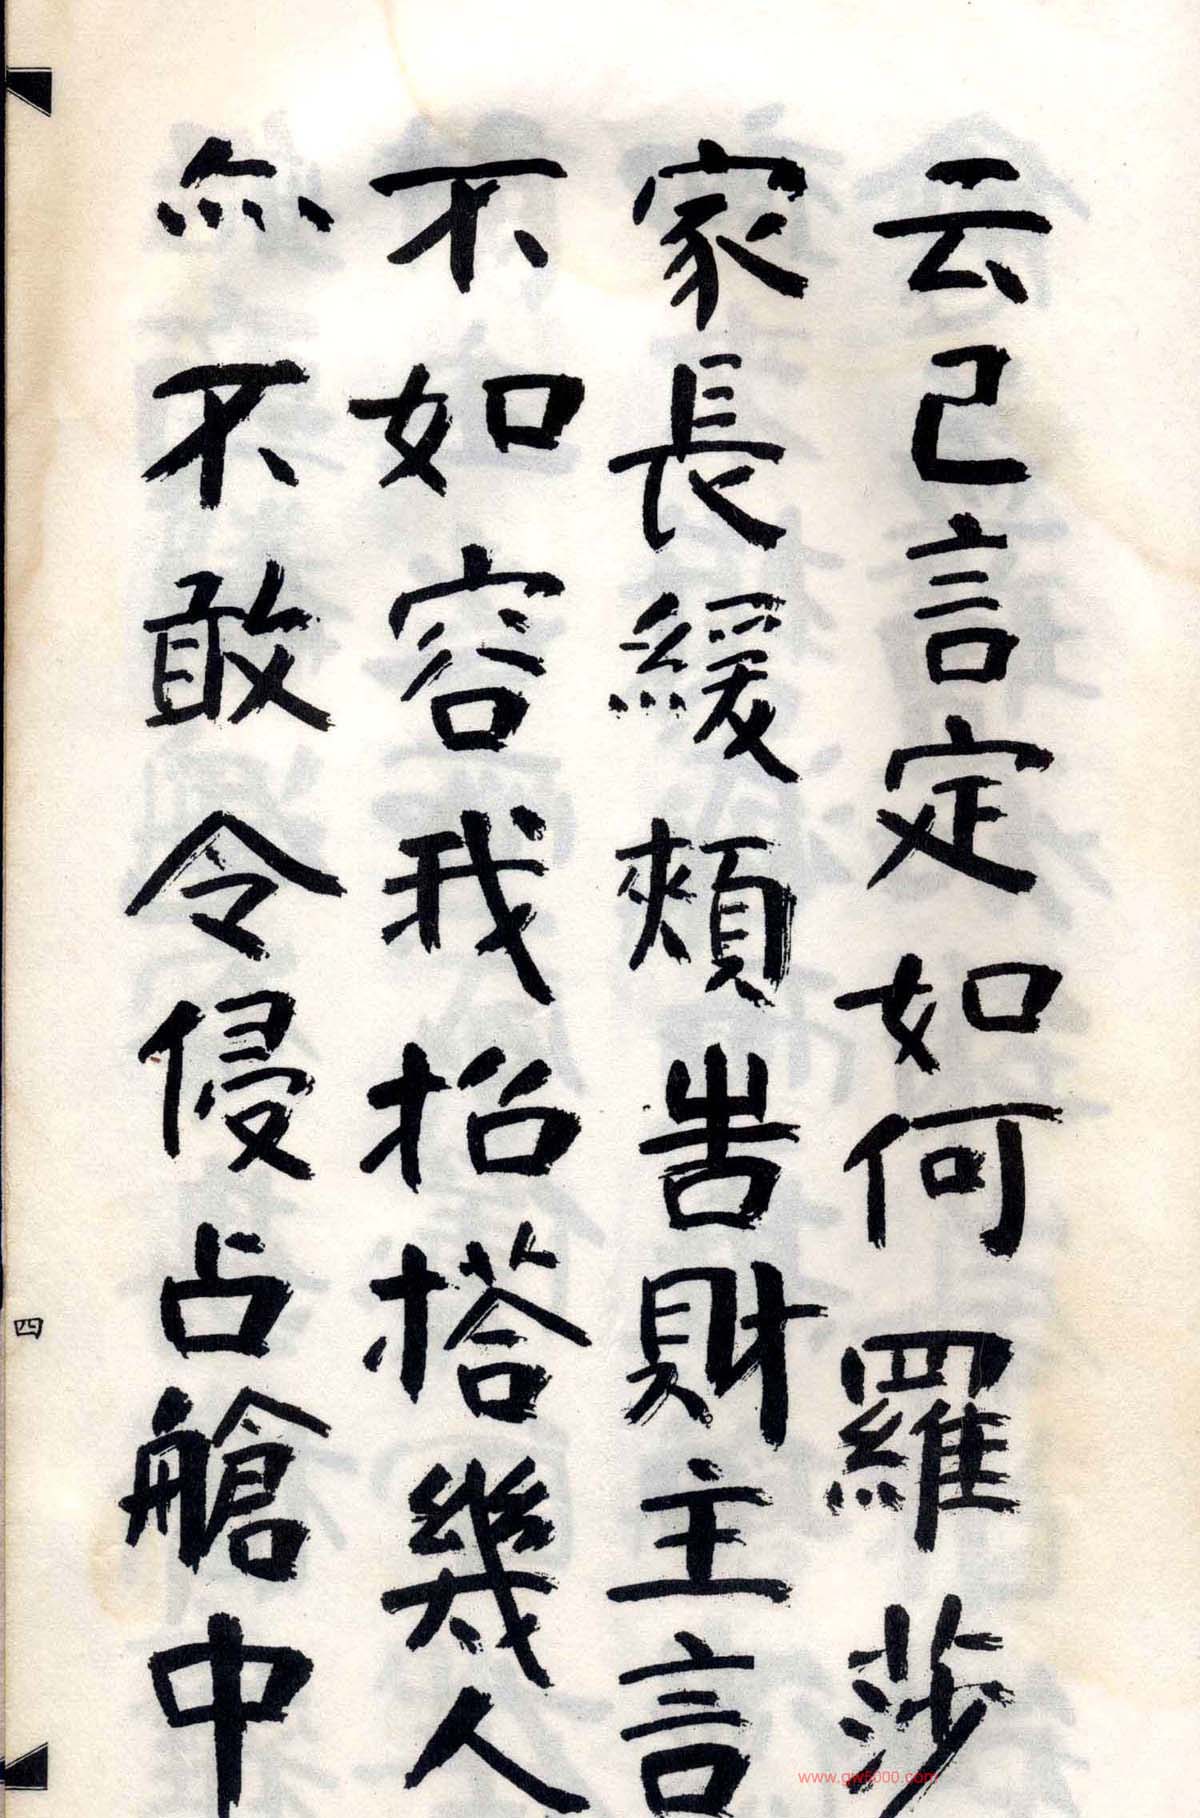 云已言定如何羅莎
家長緩頰告財主言
不如容我招搭幾人
亦不敢令侵占艙中
四